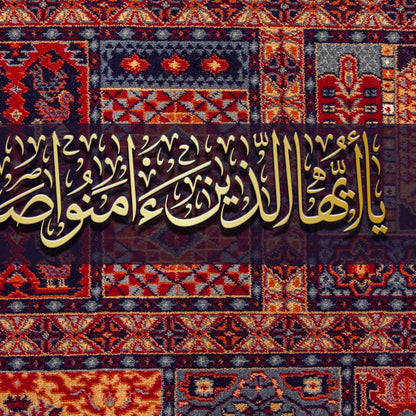 يَا أَيُّهَا الَّذِينَ ءَامَنُوا